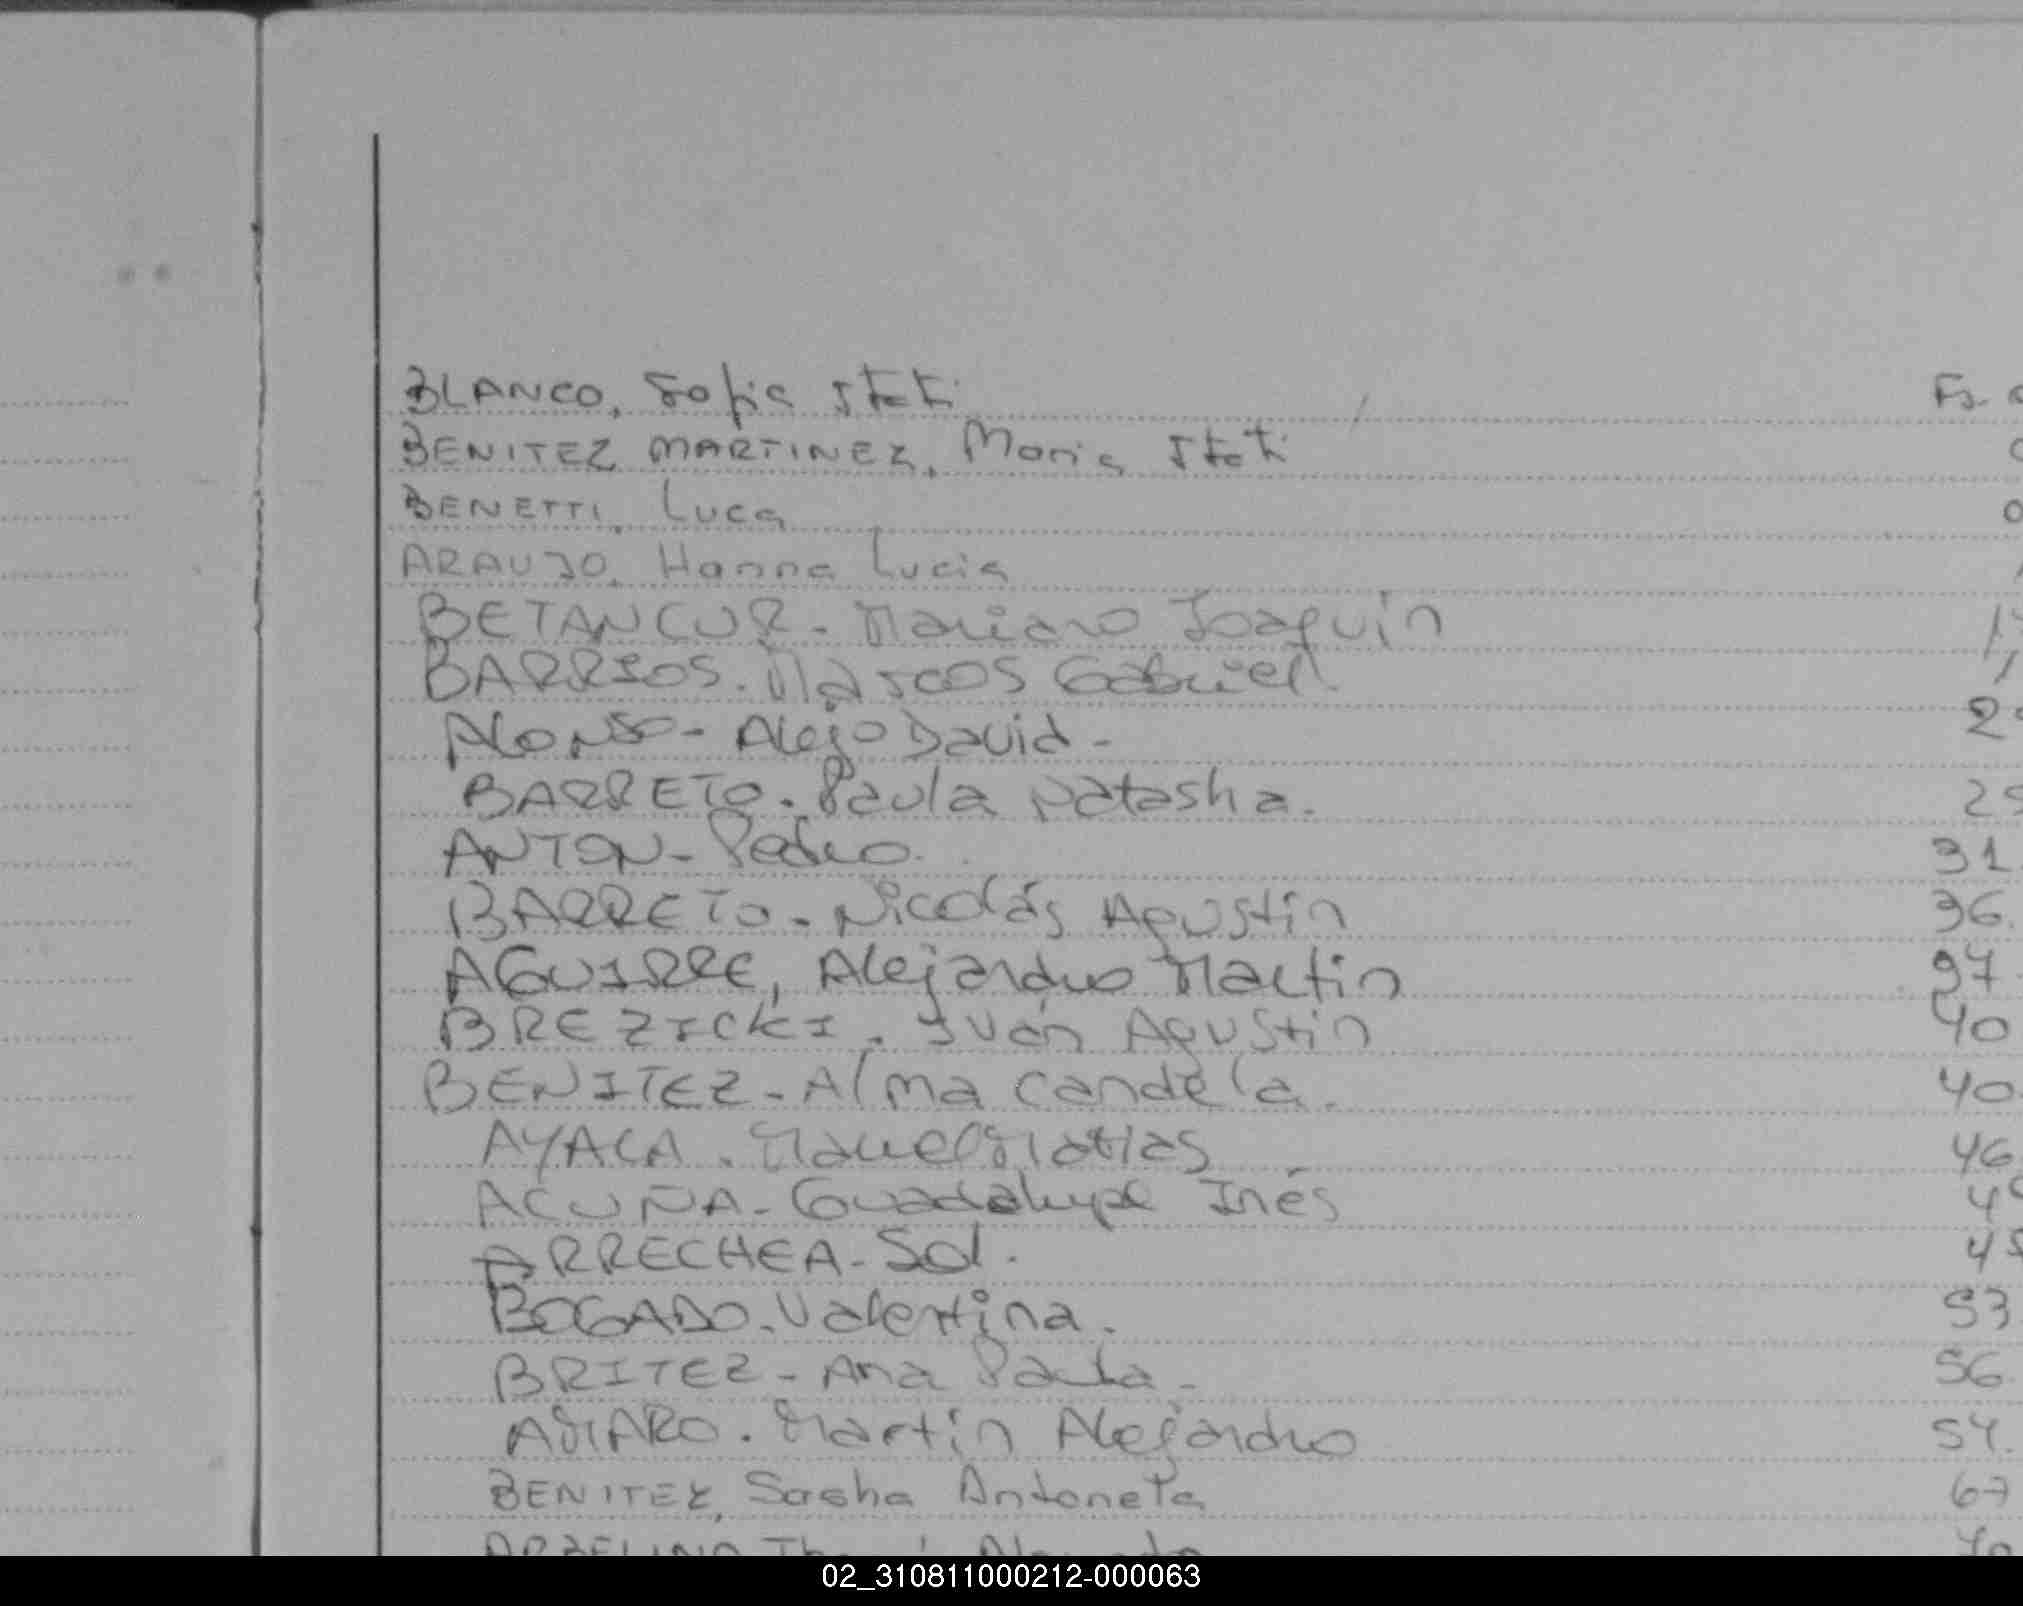 BLANCO, Sofia Itatí Fs.
BENITEZ MARTINEZ, Maria Itatí
BENETTI, Luca
ARAUJO, Hanna Lucia
BETANCUR - Mariano Joaquín
BARRIOS. Marcos Gabriel.
ALONSO - Alejo David -
BARRETO. Paula Natasha.
ANTON - Pedro. 31
BARRETO - Nicolás Agustín 36.
AGUIRRE, Alejandro Martin 37.
BREZICKI. Iván Agustín 40
BENITEZ - Alma Candela. 40.
AYALA. Matias 46
ACUÑA - Guadalupe Inés
ARRECHEA - Sol.
BOGADO. Valentina. 53
BRITEZ - Ana Paula - 56
AMARO. Martín Alejandro 57.
BENITEZ, Sasha Antoneta 67
02_310811000212-000063